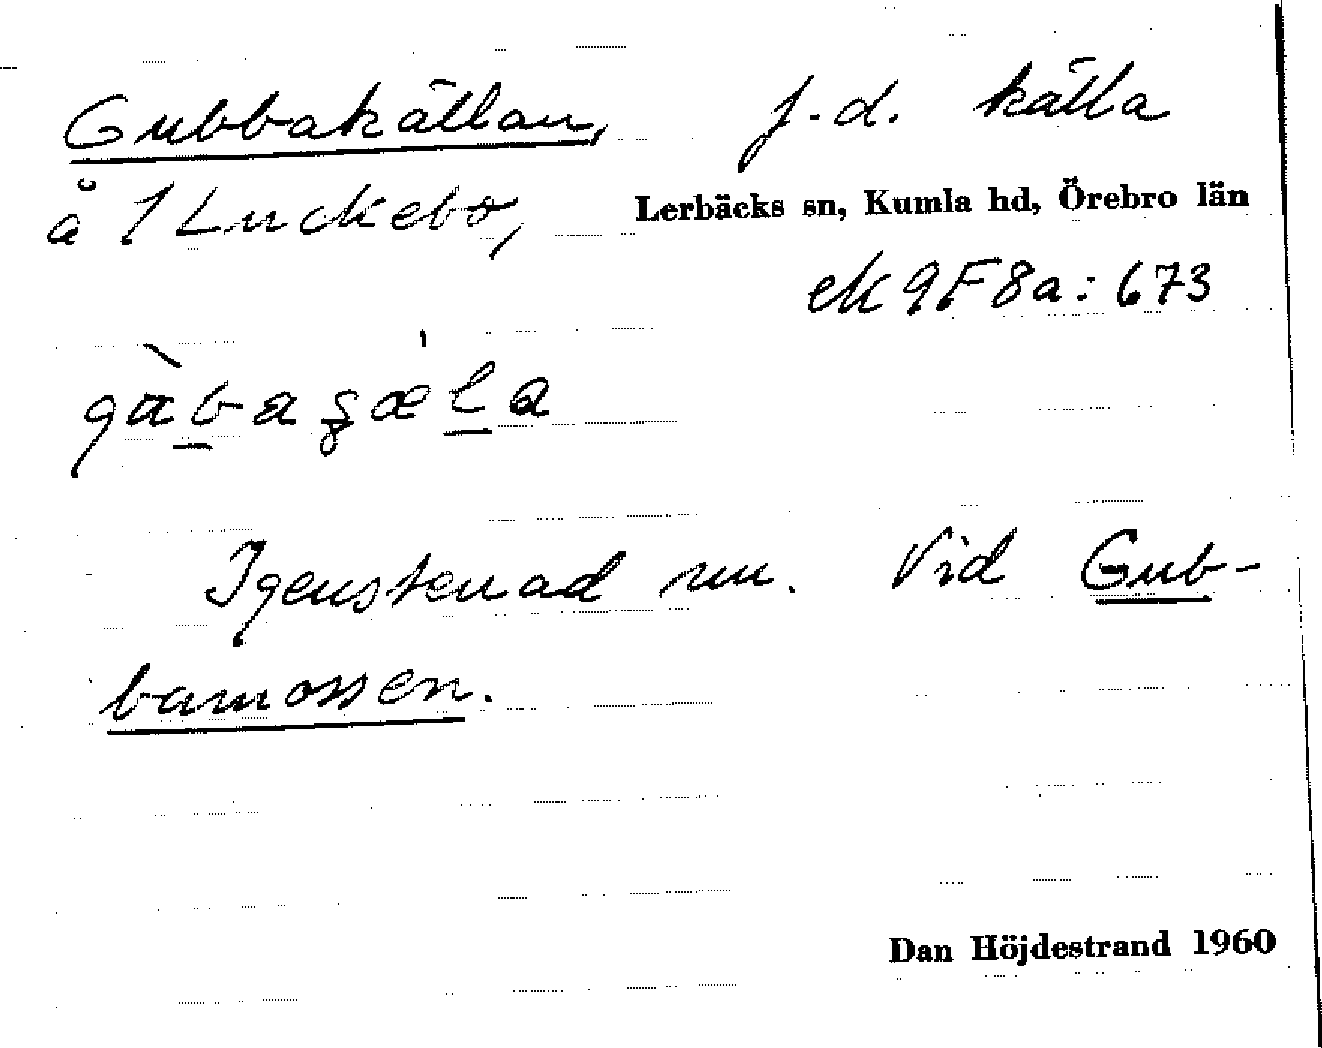 Gubbakällan, f.d. källa
å 1 Luckebo, Lerbäcks sn, Kumla hd, Örebro län
ek 9F8a: 673
Igenstenad nu. Vid Gub-
bamossen.
Dan Höjdestrand 1960